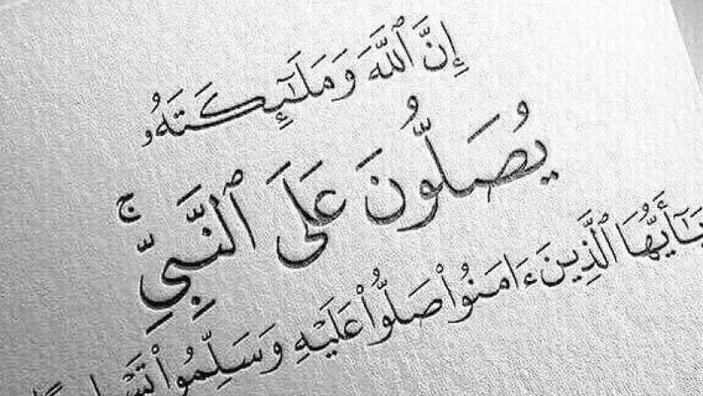 إِنَّ ٱللَّهَ وَمَلَـٰٓئِكَتَهُۥ
يُصَلُّونَ عَلَى ٱلنَّبِىِّ ۚ
يَـٰٓأَيُّهَا ٱلَّذِينَ ءَامَنُوا۟ صَلُّوا۟ عَلَيْهِ وَسَلِّمُوا۟